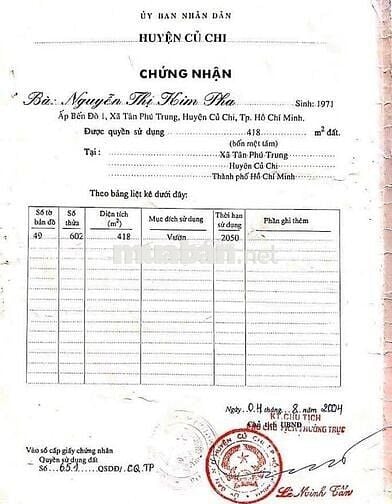 ỦY BAN NHÂN DÂN
HUYỆN CỦ CHI
CHỨNG NHẬN
Bà: Nguyễn Thị Kim Pha Sinh: 1971
Ấp Bến Đò 1, Xã Tân Phú Trung, Huyện Củ Chi, Tp. Hồ Chí Minh.
Được quyền sử dụng 418 m² đất.
(bốn một tám)
Tại: Xã Tân Phú Trung
Huyện Củ Chi
Thành phố Hồ Chí Minh
Theo bảng liệt kê dưới đây:
Số tờ bản đồ Số thửa Diện tích (m²) Mục đích sử dụng Thời hạn sử dụng Phần ghi thêm
49 602 418 Vườn 2050
muaban.net
Ngày 04 tháng 8 năm 2004
KT. CHỦ TỊCH
Chủ tịch UBND
PHÓ CHỦ TỊCH THƯỜNG TRỰC
Vào sổ cấp giấy chứng nhận
Quyền sử dụng đất
Số 651 QSDĐ/ CQ.TP
Lê Minh Tấn